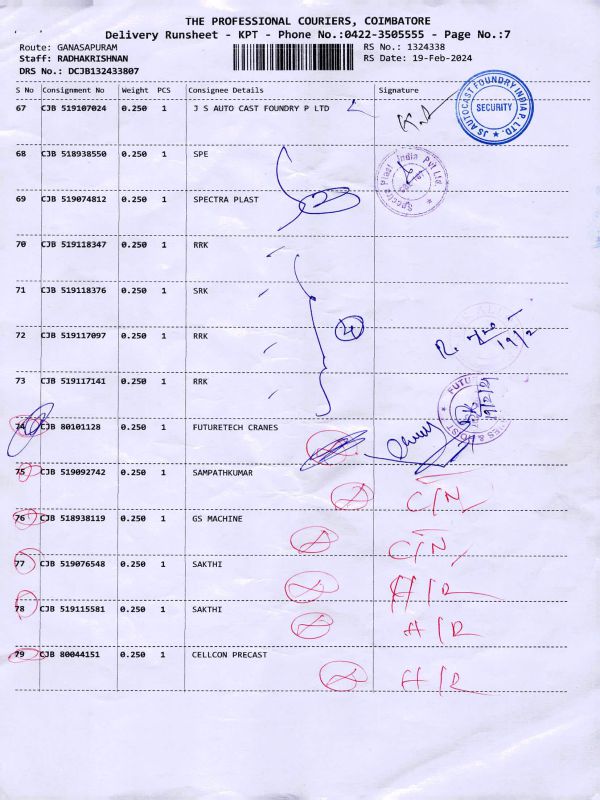 THE PROFESSIONAL COURIERS, COIMBATORE
Delivery Runsheet - KPT - Phone No.:0422-3505555 - Page No.:7
Route: GANASAPURAM RS No.: 1324338
Staff: RADHAKRISHNAN RS Date: 19-Feb-2024
DRS No.: DCJB132433807
S No Consignment No Weight PCS Consignee Details Signature
67 CJB 519107024 0.250 1 J S AUTO CAST FOUNDRY P LTD
JS AUTOCAST FOUNDRY INDIA P. LTD. ★ SECURITY
68 CJB 518938550 0.250 1 SPE
Spectra Plast India Pvt Ltd. ★
69 CJB 519074812 0.250 1 SPECTRA PLAST 2
70 CJB 519118347 0.250 1 RRK
71 CJB 519118376 0.250 1 SRK
72 CJB 519117097 0.250 1 RRK 4
19/2
73 CJB 519117141 0.250 1 RRK
19/2/24
74 CJB 80101128 0.250 1 FUTURETECH CRANES
75 CJB 519092742 0.250 1 SAMPATHKUMAR C/N
76 CJB 518938119 0.250 1 GS MACHINE C/N
77 CJB 519076548 0.250 1 SAKTHI H/R
78 CJB 519115581 0.250 1 SAKTHI H/R
79 CJB 80044151 0.250 1 CELLCON PRECAST H/R